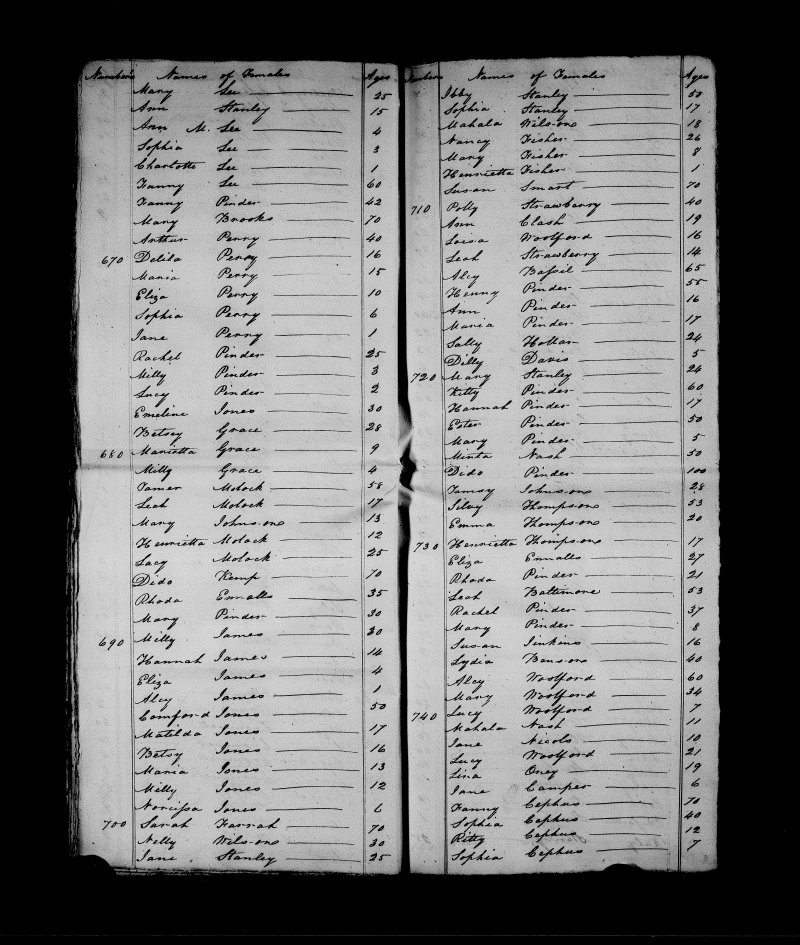 Numbers Names of Females Ages
Mary Lee 25
Ann Stanley 15
Ann M. Lee 4
Sophia Lee 3
Charlotte Lee 1
Fanny Lee 60
Fanny Pinder 42
Mary Brooks 70
Arthur Perry 40
670 Delila Perry 16
Maria Perry 15
Eliza Perry 10
Sophia Perry 6
Jane Perry 1
Rachel Pinder 25
Milly Pinder 3
Lucy Pinder 2
Emeline Jones 30
Betsey Grace 28
680 Marietta Grace 9
Milly Grace 4
Tamer Molock 58
Leah Molock 17
Mary Johnsone 13
Henrietta Molack 12
Lacy Molock 25
Dido Kemp 70
Rhoda Ennalls 35
Mary Pinder 30
690 Milly James 30
Hannah James 14
Eliza James 4
Alcy James 1
Comford Jones 50
Matilda Jones 17
Betsy Jones 16
Maria Jones 13
Milly Jones 12
Narcissa Jones 6
700 Sarah Farrah 70
Nelly Wilsone 30
Jane Stanley 25
Numbers Names of Females Ages
Ibby Stanley 50
Sophia Stanley 17
Mahala Wilsone 18
Nancy Fisher 26
Mary Fisher 8
Henrietta Fisher 1
Susan Smart 70
710 Polly Strawberry 40
Ann Clash 19
Loisa Woolford 16
Leah Strawberry 14
Alcy Bassil 65
Henny Pinder 55
Ann Pinder 16
Maria Pinder 17
Sally Hollar 24
Dilly Davis 5
720 Mary Stanley 24
Kitty Pinder 60
Hannah Pinder 17
Ester Pinder 50
Mary Pinder 5
Minta Nash 50
Dido Pinder 100
Tamsy Johnsone 28
Silvy Thompsone 53
Emma Thompsone 20
730 Henrietta Thompsone 17
Eliza Ennalls 27
Rhoda Pinder 21
Leah Baltimore 53
Rachel Pinder 37
Mary Pinder 8
Susan Jinkins 16
Lydia Bensone 40
Alcy Woolford 60
Mary Woolford 34
740 Lucy Woolford 7
Mahala Nash 11
Jane Nicols 10
Lucy Woolford 21
Lina Oney 19
Jane Camper 6
Fanny Cephus 70
Sophia Cephus 40
Kitty Cephus 12
Sophia Cephus 7